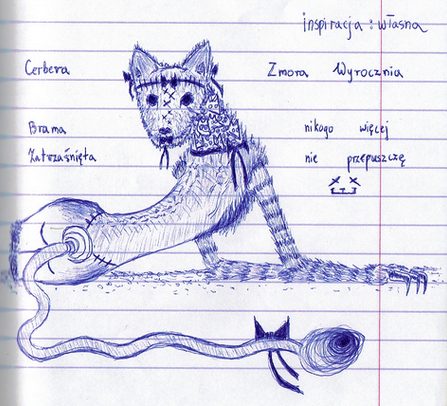 inspiracja : własna
Cerbera Zmora Wyrocznia
Brama nikogo więcej
Zatrzaśnięta nie przepuszczę